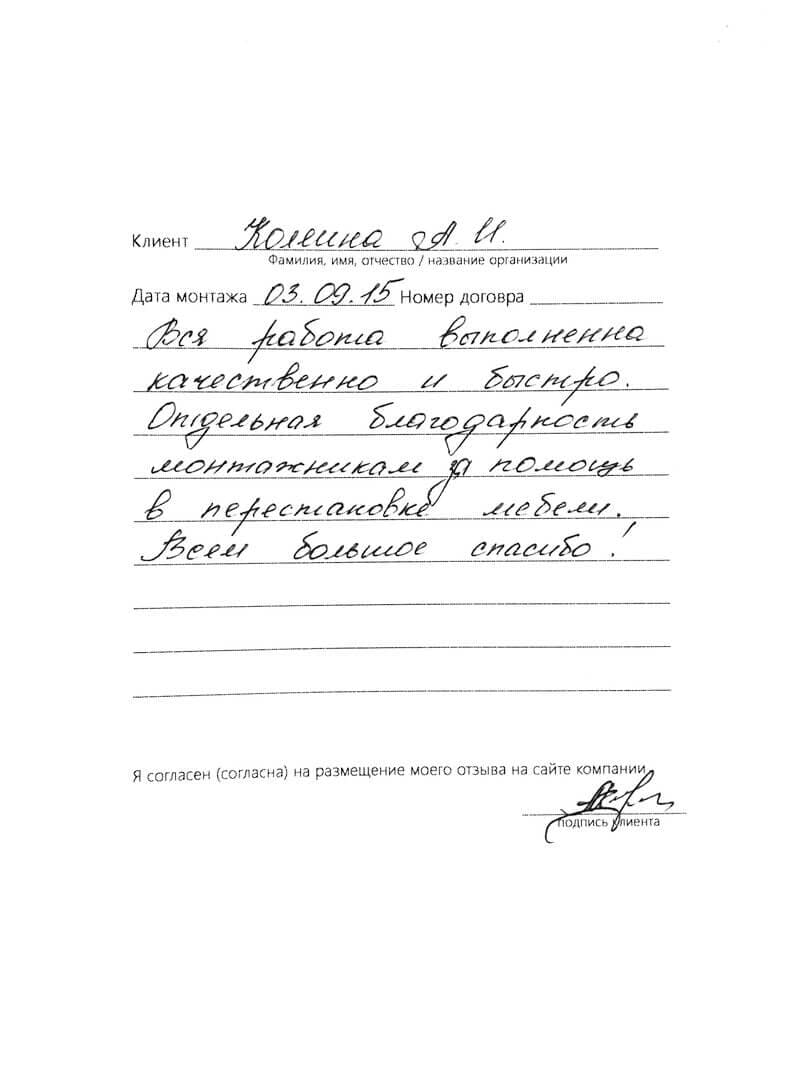 Клиент Колмина А. И.
Фамилия, имя, отчество / название организации
Дата монтажа 03.09.15 Номер договра
Вся работа выполненна
качественно и быстро.
Отдельная благодарность
монтажникам за помощь
в перестановке мебели.
Всем большое спасибо!
Я согласен (согласна) на размещение моего отзыва на сайте компании
подпись клиента